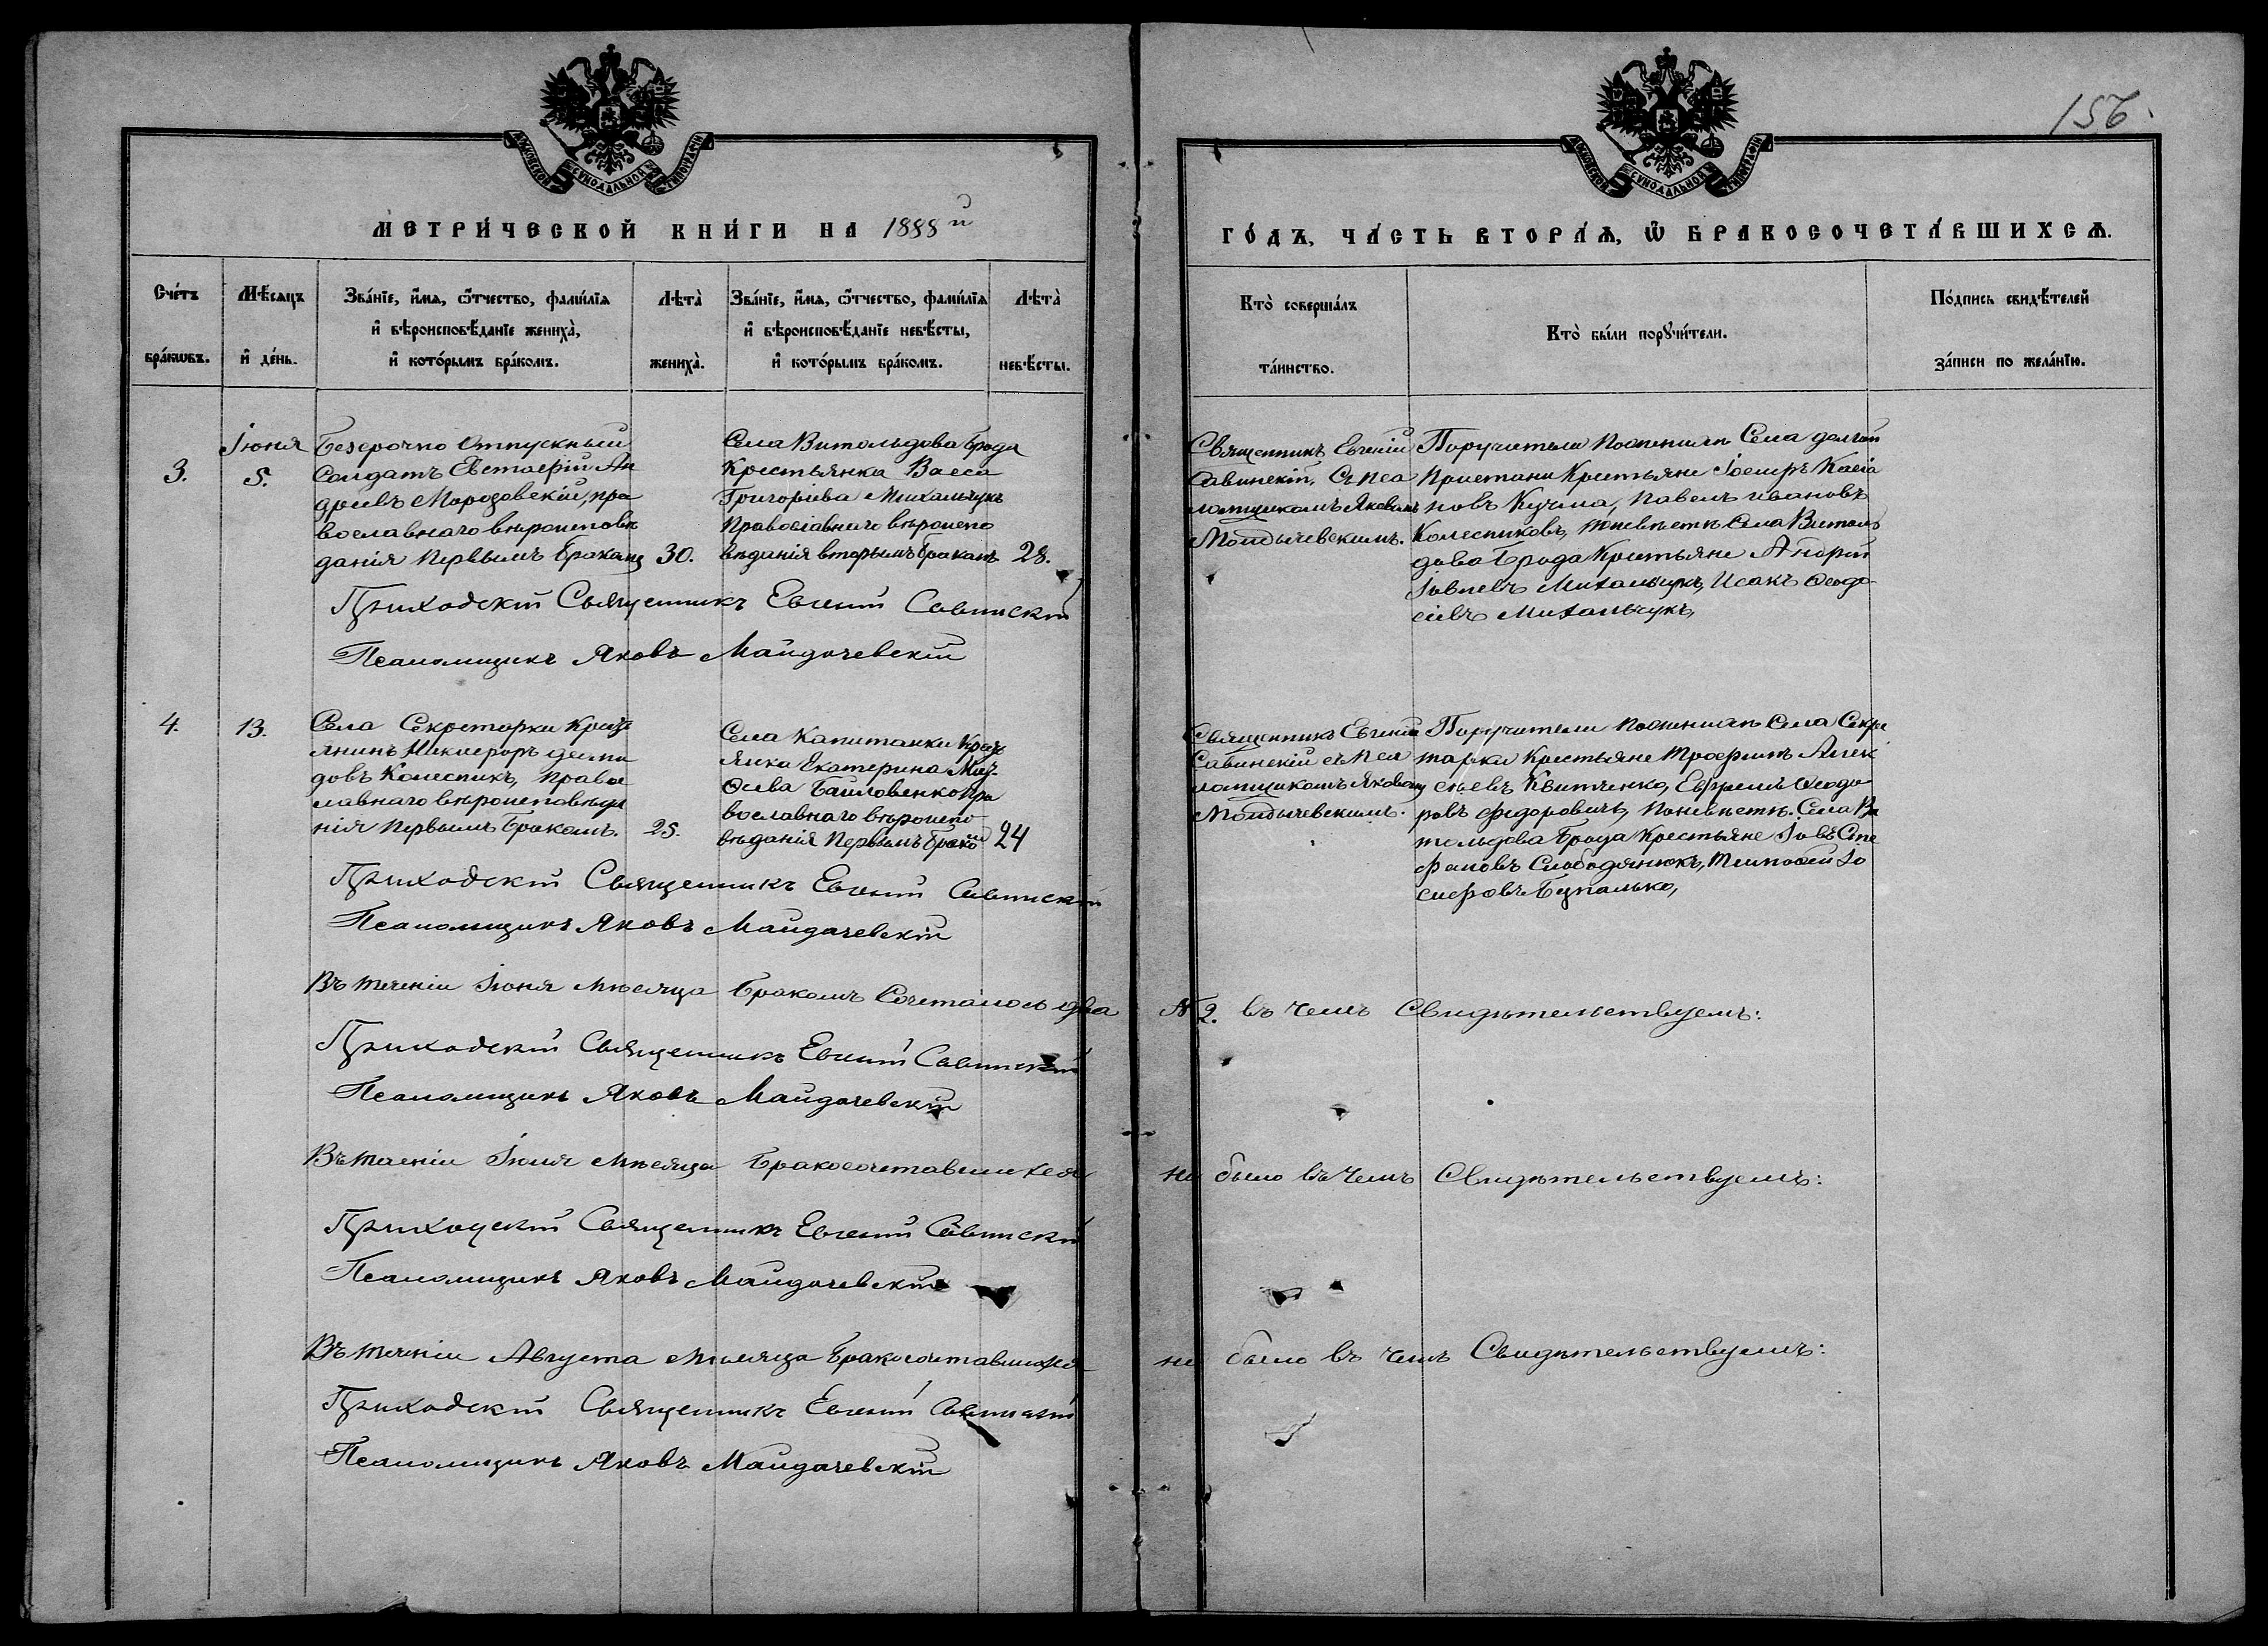 156.
МОСКОВСКОЙ СѴНОДАЛЬНОЙ ТИПОГРАФІИ
МОСКОВСКОЙ СѴНОДАЛЬНОЙ ТИПОГРАФІИ
МЕТРИ́ЧЕСКОЙ КНИ́ГИ НА 1888й
ГО́ДЪ, ЧА́СТЬ ВТОРА́Ѧ, Ѡ҆ БРАКОСОЧЕТА́ВШИХСѦ.
Сче́тъ
бра́кѡвъ.
Мѣ́сѧцъ
и҆ де́нь.
Зва́нїе, и҆́мѧ, ѻ҆́тчество, фами́лїѧ
и҆ вѣроисповѣ́данїе жениха̀,
и҆ кото́рымъ бра́комъ.
Лѣта̀
жениха̀.
Зва́нїе, и҆́мѧ, ѻ҆́тчество, фами́лїѧ
и҆ вѣроисповѣ́данїе невѣ́сты,
и҆ кото́рымъ бра́комъ.
Лѣта̀
невѣ́сты.
Кто̀ соверша́лъ
та́инство.
Кто̀ бы́ли порꙋчи́тели.
По́дпись свидѣ́телей
за́писи по жела́нїю.
3.
Іюня
5.
Безсрочно отпускный
Солдатъ Евстафій Ан
дреевъ Морозовскій, пра
вославнаго вѣроисповѣ
данія первымъ бракомъ
30.
Села Витольдова Брода
Крестьянка Васса
Григорьева Михальчукъ
Православнаго вѣроиспо
вѣданія вторымъ бракомъ
28.
Священникъ Евгеній
Савинскій, съ пса
ломщикомъ Яковомъ
Мойдычевскимъ.
Поручители по женихѣ Села Долгой
Пристани Крестьяне Іосифъ Касіа
новъ Кучма, Павелъ Ивановъ
Колесниковъ, по невѣстѣ Села Витоль
дова Брода Крестьяне Андрей
Іовлевъ Михальчукъ, Исакъ Ѳеодо
сіевъ Михальчукъ,
Приходскій Священникъ Евгеній Савинскій
Псаломщикъ Яковъ Майдачевскій
4.
13.
Села Секретарки Кресть
янинъ Никифоръ Деми
довъ Колесникъ, Правос
лавнаго вѣроисповѣда
нія первымъ бракомъ.
25.
Села Капитанки Крест
янка Екатерина
Байловенко Пра
вославнаго вѣроиспо
вѣданія первымъ бракомъ
24
Священникъ Евгеній
Савинскій съ пса
ломщикомъ Яковомъ
Мойдычевскимъ.
Поручители по женихѣ Села Секре
тарки Крестьяне Трофимъ Алек
сѣевъ Квитченко, Ефремъ Ѳеодо
ровъ Федоровичъ, по невѣстѣ. Села Ви
тольдова Брода Крестьяне Іовъ Сте
фановъ Слободянюкъ, Тимофей Іо
сифовъ Бузналько,
Приходскій Священникъ Евгеній Савинскій
Псаломщикъ Яковъ Майдачевскій
Въ теченіи Іюня мѣсяца бракомъ сочеталось два № 2. въ чемъ Свидѣтельствуемъ:
Приходскій Священникъ Евгеній Савинскій
Псаломщикъ Яковъ Майдачевскій
Въ теченіи Іюля мѣсяца бракосочетавшихся не было въ чемъ Свидѣтельствуемъ:
Приходскій Священникъ Евгеній Савинскій
Псаломщикъ Яковъ Майдачевскій
Въ теченіи Августа мѣсяца бракосочетавшихся не было въ чемъ Свидѣтельствуемъ:
Приходскій Священникъ Евгеній Савинскій
Псаломщикъ Яковъ Майдачевскій